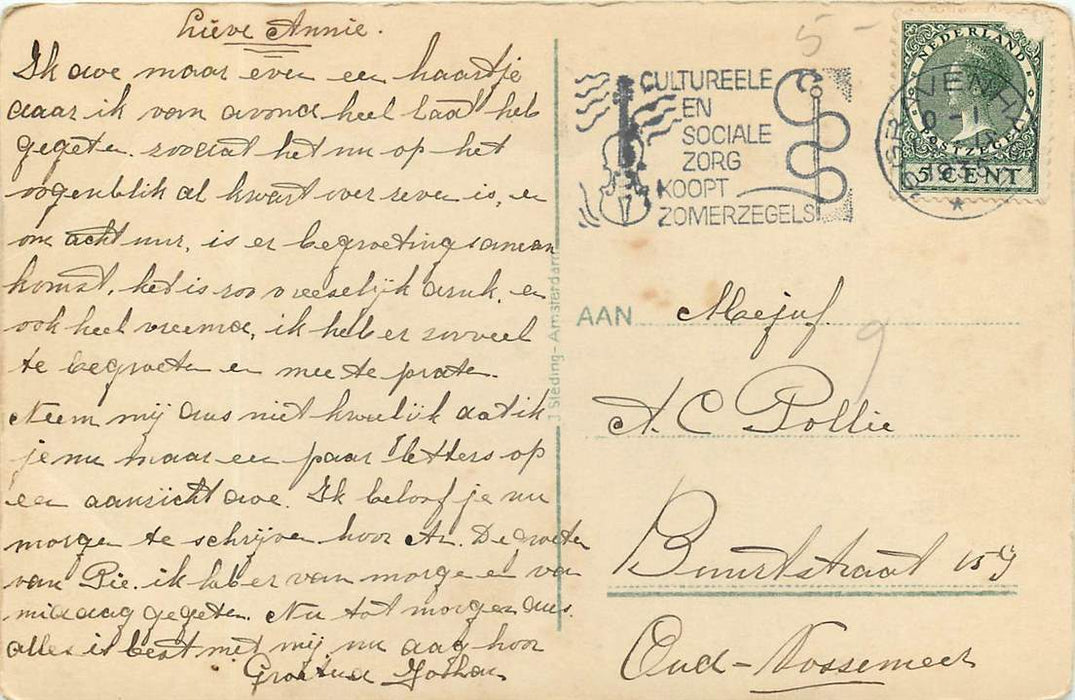 Lieve Annie.
Ik doe maar even een kaartje
daar ik van avond heel laat heb
gegeten. zoodat het nu op het
oogenblik al kwart over zeven is, en
om acht uur, is er begroetingsamen
komst, het is zoo vreeselijk druk, en
ook heel vreemd, ik heb er zooveel
te begroeten en mee te praten.
Neem mij dus niet kwalijk dat ik
je nu maar een paar letters op
een aanzicht doe. Ik beloof je nu
morgen te schrijven hoor An. De groeten
van Pie. ik heb er van morgen en van
middag gegeten. Nu tot morgen dus.
alles is best met mij. nu dag hoor
5-
CULTUREELE
EN
SOCIALE
ZORG
KOOPT
ZOMERZEGELS
NEDERLAND
POSTZEGEL
5 CENT
J Sleding-Amsterdam
AAN Mejuf.
9
A. C Pollie
Buurtstraat
Oud-Vossemeer